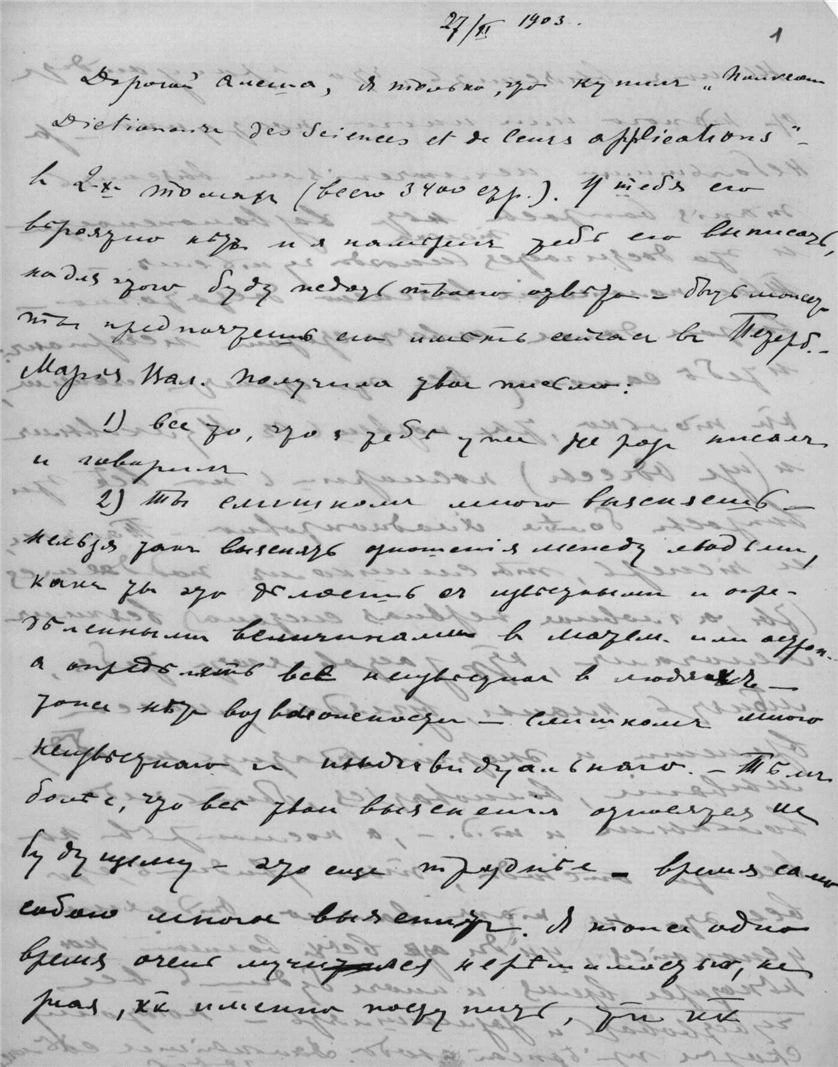 27/XI 1903.
1
Дорогой Алеша, Я только, что купилъ „Nouveau
Dictionnaire des Sciences et de leurs applications"–
въ 2-хъ томахъ (всего 3400 стр.). У тебя его
вѣроятно нѣтъ и я намѣренъ тебѣ его выписать,
но для этого буду ждать твоего отвѣта – быть можетъ
ты предпочтешь его имѣть сейчасъ въ Петерб.–
Марія Вал. получила твое письмо:
1) все то, что я тебѣ уже не разъ писалъ
и говорилъ
2) Ты слишкомъ много выясняешь –
нельзя такъ выяснять отношенія между людьми,
какъ ты это дѣлаешь съ извѣстными и опре-
дѣленными величинами въ матем. или астрон.
а опредѣлять все неизвѣстное въ людяхъ –
тоже нѣтъ возможности – слишкомъ много
неизвѣстнаго и индивидуальнаго. – Тѣмъ
болѣе, что всѣ твои выясненія относятся къ
будущему – это еще труднѣе – время само
собою многое выяснитъ. Я тоже одно
время очень мучился нерѣшимостью, не
зная, кк именно поступить, или кк